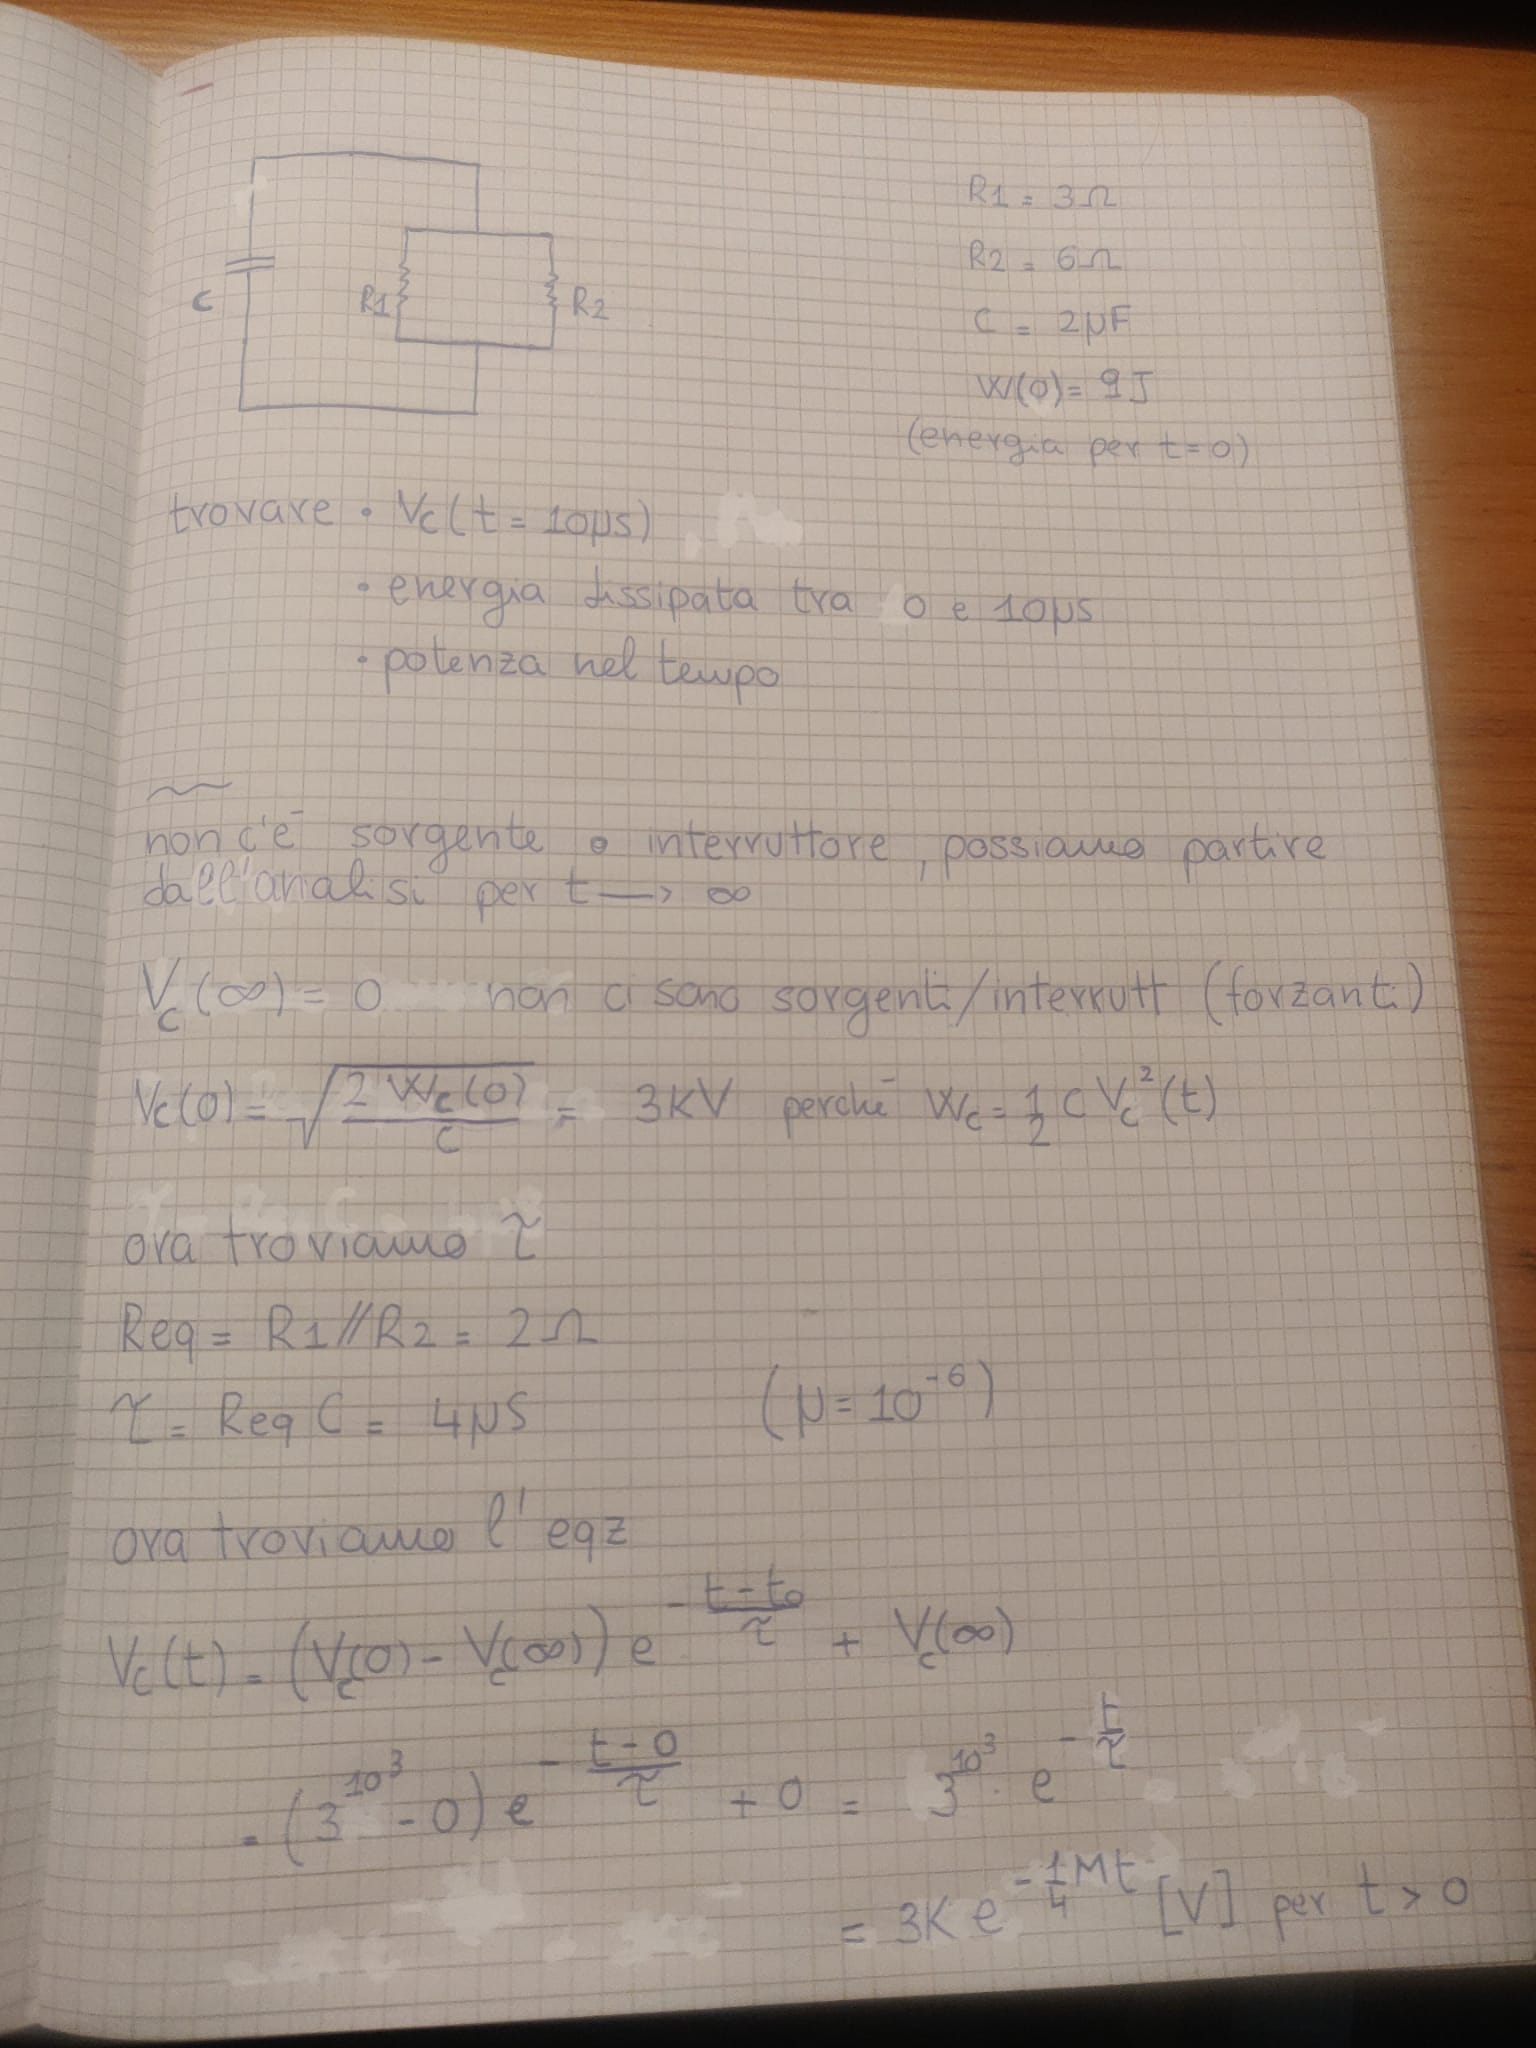 R1 = 3Ω
R2 = 6Ω
C = 2μF
W(0) = 9J
(energia per t=0)
C
R1
R2
trovare • Vc(t = 10μs)
• energia dissipata tra 0 e 10μs
• potenza nel tempo
non c'è sorgente o interruttore, possiamo partire
dall'analisi per t → ∞
Vc(∞) = 0 non ci sono sorgenti/interrutt (forzanti)
Vc(0) = √(2 Wc(0) / C) = 3KV perché Wc = 1/2 C Vc²(t)
ora troviamo τ
Req = R1 // R2 = 2Ω
τ = Req C = 4μs (μ = 10⁻⁶)
ora troviamo l'eqz
Vc(t) = (Vc(0) - Vc(∞)) e^(-(t-t₀)/τ) + Vc(∞)
= (3 10³ - 0) e^(-(t-0)/τ) + 0 = 3 10³ · e^(-t/τ)
= 3K e^(-1/4 Mt) [V] per t > 0